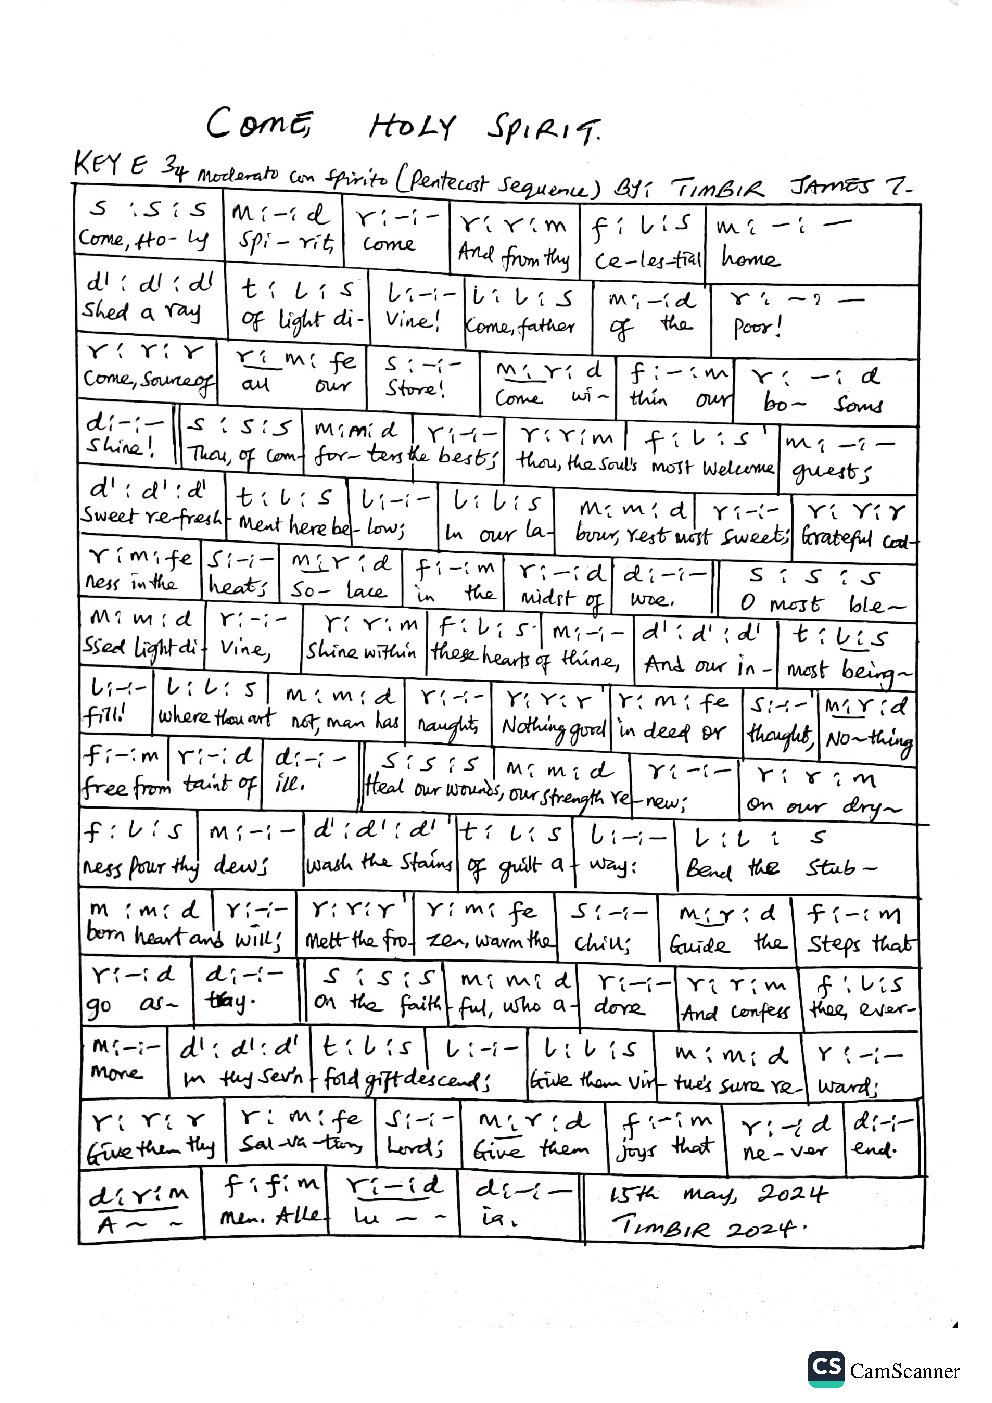 COME, HOLY SPIRIT.
KEY E 3/4 Moderato con Spirito (Pentecost Sequence) BY: TIMBIR JAMES T.
s : s : s | m : - : d | r : - : - | r : r : m | f : l : s | m : - : -
Come, Ho- ly Spi - rit, come And from thy ce-les-tial home
d' : d' : d' | t : l : s | l : - : - | l : l : s | m : - : d | r : - : -
Shed a ray of light di- vine! Come, father of the poor!
r : r : r | r : m : fe | s : - : - | m : r : d | f : - : m | r : - : d
Come, Source of all our Store! Come wi~ thin our bo~ soms
d : - : - || s : s : s | m : m : d | r : - : - | r : r : m | f : l : s | m : - : -
Shine! Thou, of com- for-ters the best; thou, the Soul's most welcome guest;
d' : d' : d' | t : l : s | l : - : - | l : l : s | m : m : d | r : - : - | r : r : r
Sweet re-fresh- ment here be- low; In our la- bour, rest most sweet; Grateful cool-
r : m : fe | s : - : - | m : r : d | f : - : m | r : - : d | d : - : - || s : s : s
ness in the heat; So- lace in the midst of woe. O most ble~
m : m : d | r : - : - | r : r : m | f : l : s | m : - : - | d' : d' : d' | t : l : s
ssed light di- vine, Shine within these hearts of thine, And our in- most being~
l : - : - | l : l : s | m : m : d | r : - : - | r : r : r | r : m : fe | s : - : - | m : r : d
fill! where thou art not, man has naught, Nothing good in deed or thought, No~thing
f : - : m | r : - : d | d : - : - || s : s : s | m : m : d | r : - : - | r : r : m
free from taint of ill. Heal our wounds, our strength re-new; on our dry~
f : l : s | m : - : - | d' : d' : d' | t : l : s | l : - : - | l : l : s
ness pour thy dew; wash the Stains of guilt a- way: Bend the Stub-
m : m : d | r : - : - | r : r : r | r : m : fe | s : - : - | m : r : d | f : - : m
born heart and will; Melt the fro- zen, warm the chill; Guide the Steps that
r : - : d | d : - : - || s : s : s | m : m : d | r : - : - | r : r : m | f : l : s
go as~ tray. On the faith- ful, who a- dore And confess thee, ever-
m : - : - | d' : d' : d' | t : l : s | l : - : - | l : l : s | m : m : d | r : - : -
more In thy Sev'n- fold gift descend; Give them vir- tue's sure re- ward;
r : r : r | r : m : fe | s : - : - | m : r : d | f : - : m | r : - : d | d : - : -
Give them thy Sal-va-tion, Lord; Give them joys that ne-ver end.
d : r : m | f : f : m | r : - : d | d : - : - || 15th may, 2024
A ~ ~ men. Alle lu ~ ~ ia. TIMBIR 2024.
CS CamScanner